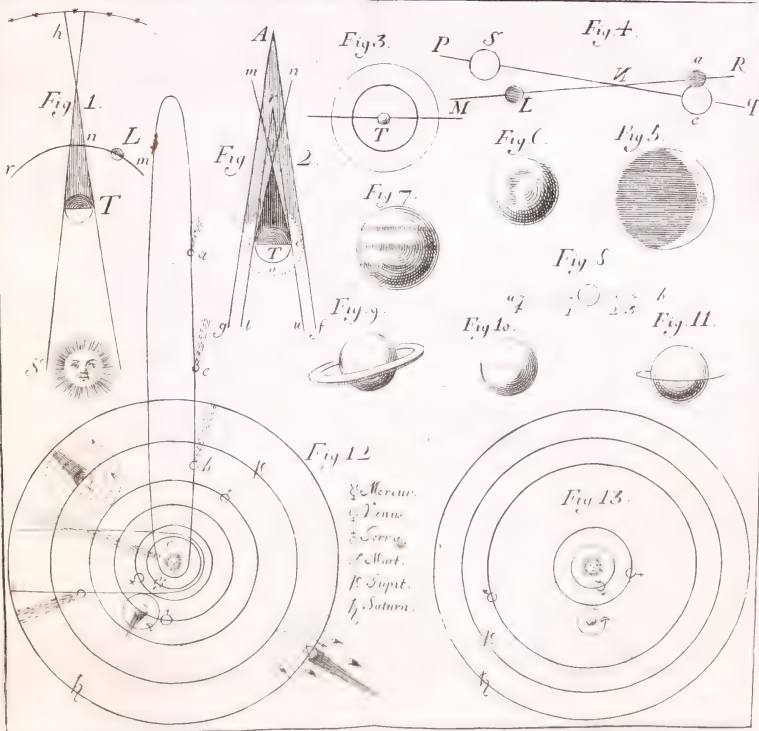 h
Fig 1.
n
L
m
r
T
S
A
m
n
r
Fig 2.
T
g
t
u
f
Fig 3.
T
Fig. 4.
P
S
M
L
N
a
R
e
q
Fig 6.
Fig. 5.
Fig 7.
Fig 8
a
4
1
2
3
b
Fig. 9.
Fig 10.
Fig. 11.
a
e
b
Fig 12
☿ Mercur.
♀ Venus
Terra
♂ Mart.
♃ Jupit.
♄ Saturn.
♃
♄
Fig 13.
♃
♄